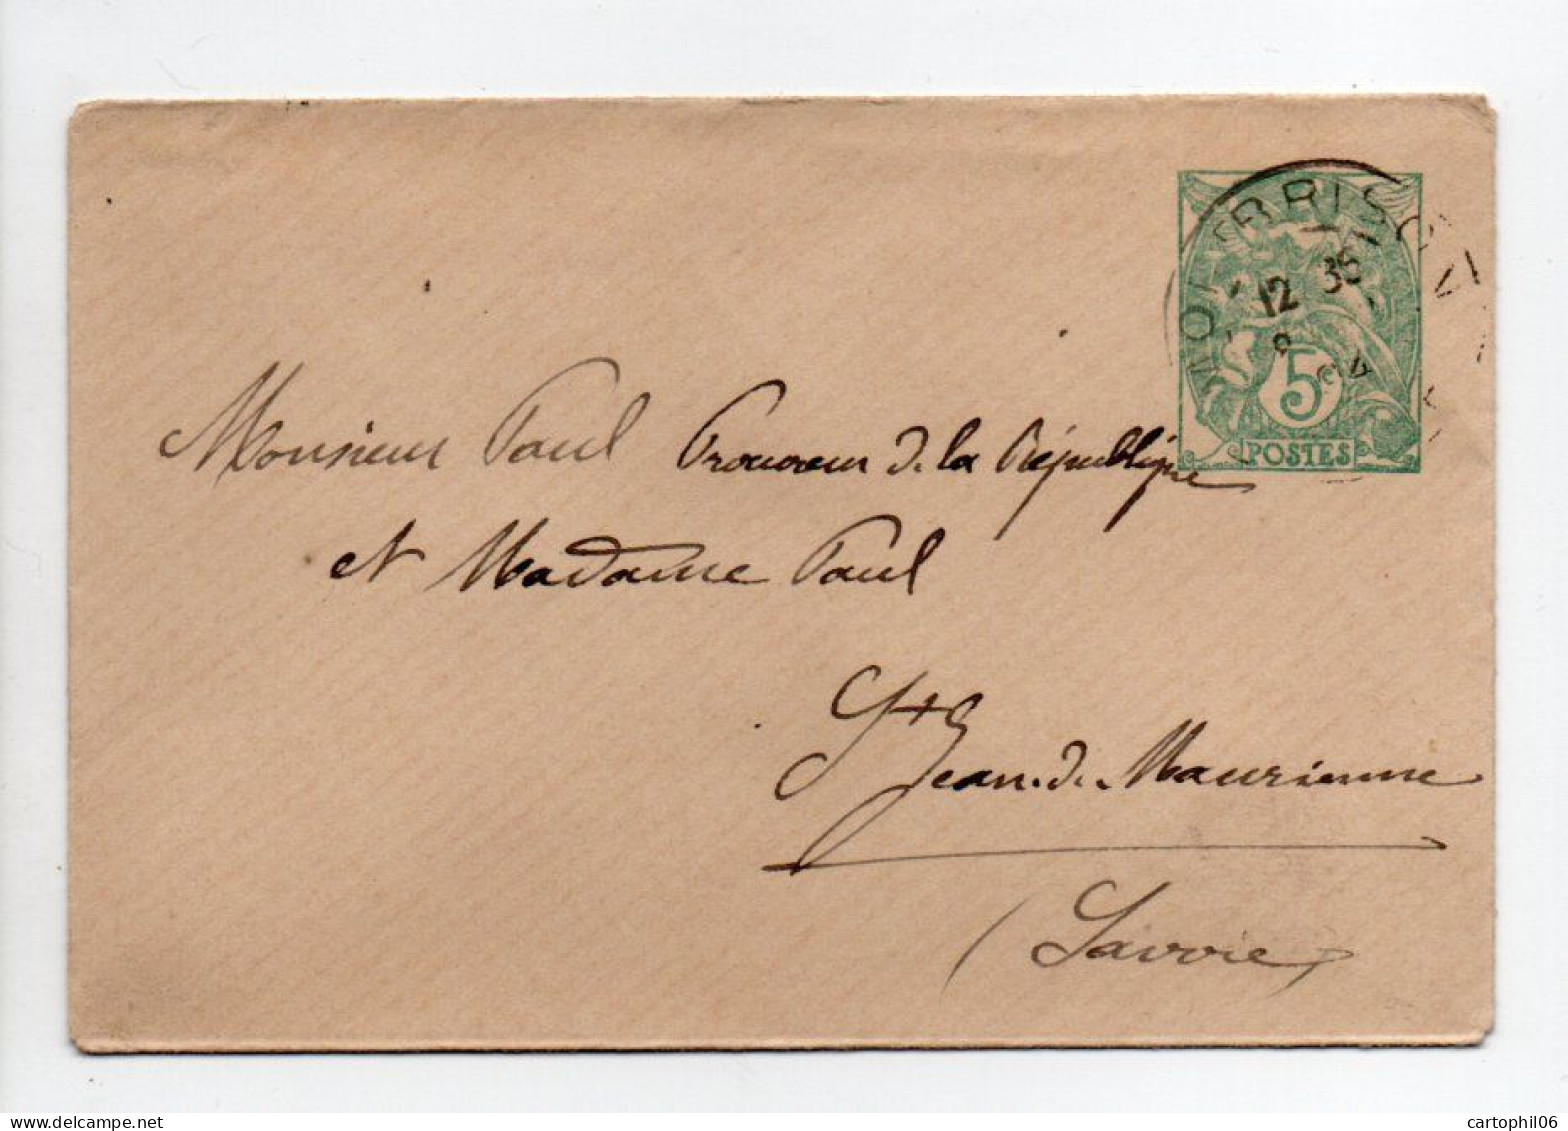 MONTBRISON
12 35
5
POSTES
Monsieur Paul Procureur d. la République
et Madame Paul
St Jean. d. Maurienne
(Savoie)
delcampe.net
cartophil06